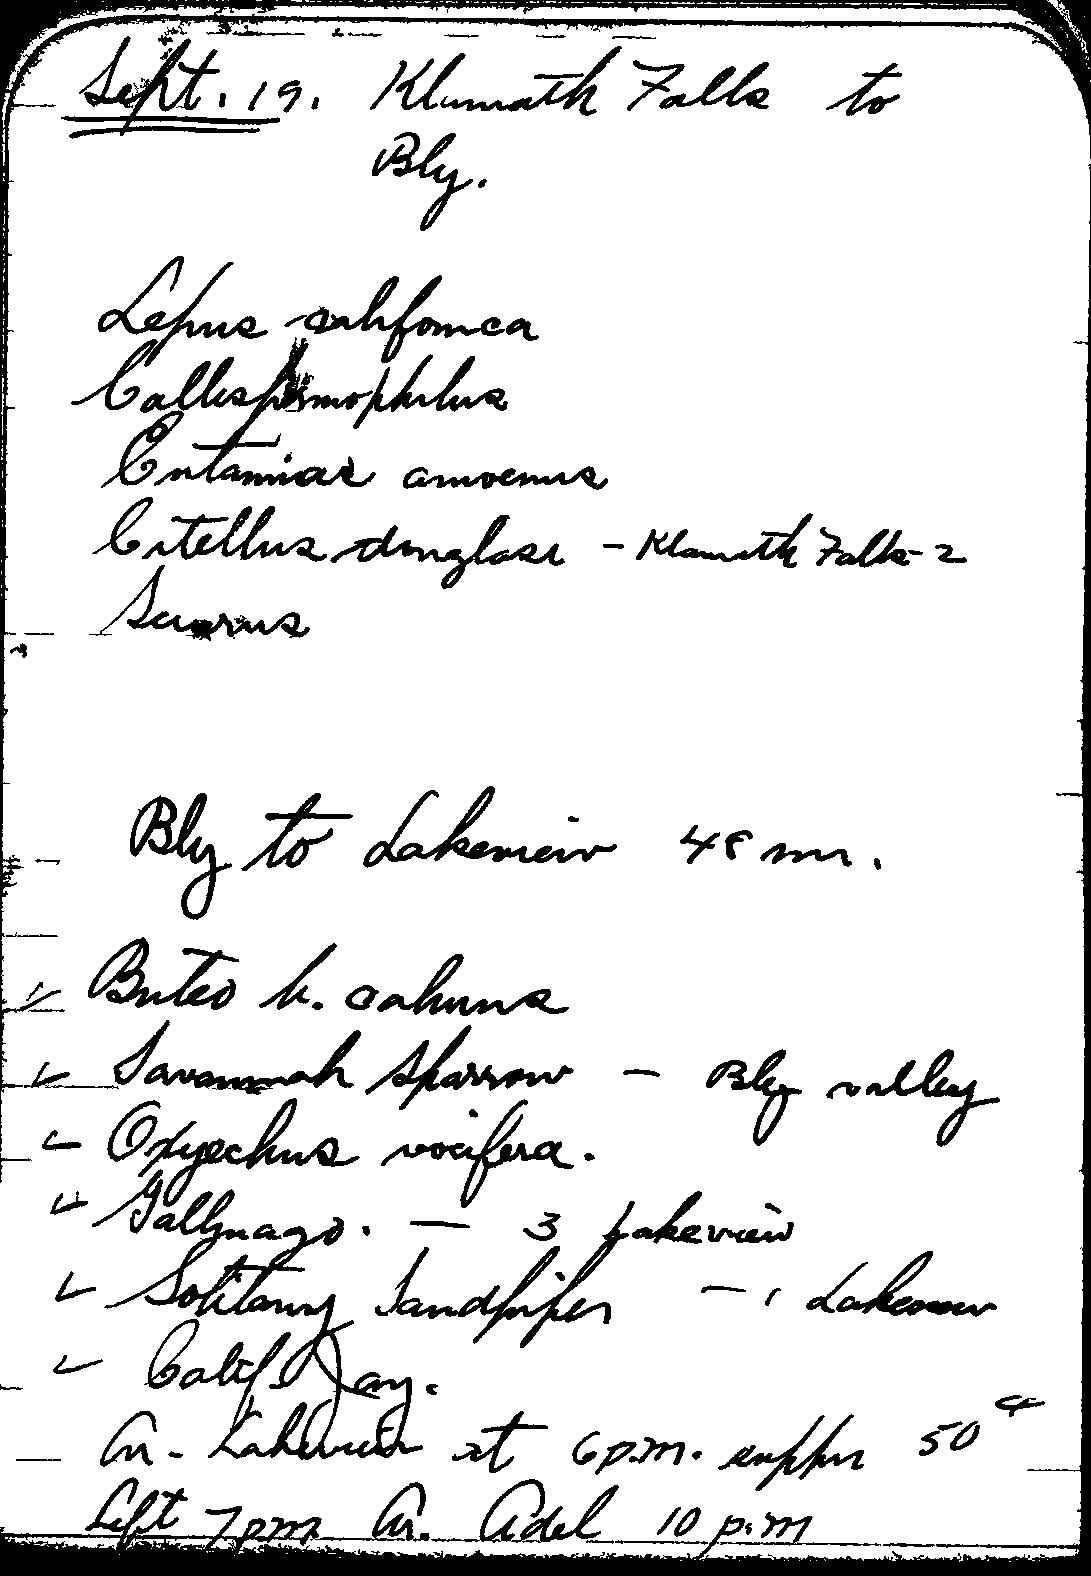 Sept. 19. Klamath Falls to
Bly.
Lepus califonica
Callospermophilus
Eutamias amoenus
Citellus douglasi - Klamath Falls - 2
Sciurus
Bly to Lakeview 48 mi.
Buteo b. calurus
Savannah Sparrow - Bly valley
Oxyechus vocifera.
Gallinago. - 3 Lakeview
Solitary Sandpiper - 1 Lakeview
Calif Jay.
Ar. Lakeview at 6 p.m. supper 50¢
Left 7 p.m. Ar. Adel 10 p.m